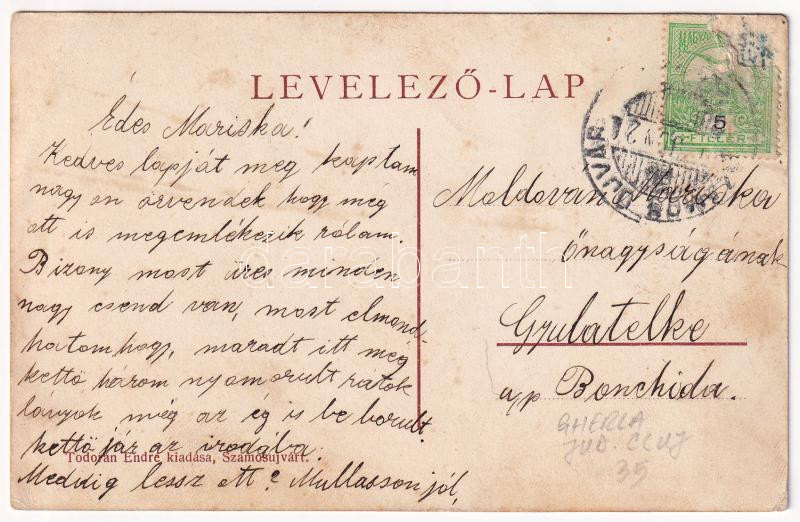 LEVELEZŐ-LAP
Édes Mariska!
Kedves lapját meg kaptam
nagyon örvendek hogy még
ott is megemlékezik rólam.
Bizony most üres minden
nagy csend van, most elmond-
hatom hogy, maradt itt még
kettő három nyomorult rátok
lányok még az ég is be borult.
kettő jár az irodába.
Meddig lessz ott? Mullasson jól,
Todorán Endre kiadása, Szamosujvárt.
Moldován Mariska
Őnagyságának
Gyulatelke
u/p Bonchida.
GHERLA
JUD. CLUJ
35
MAGYAR
5
FILLÉR
SZAMOSUJVÁR
darabanth